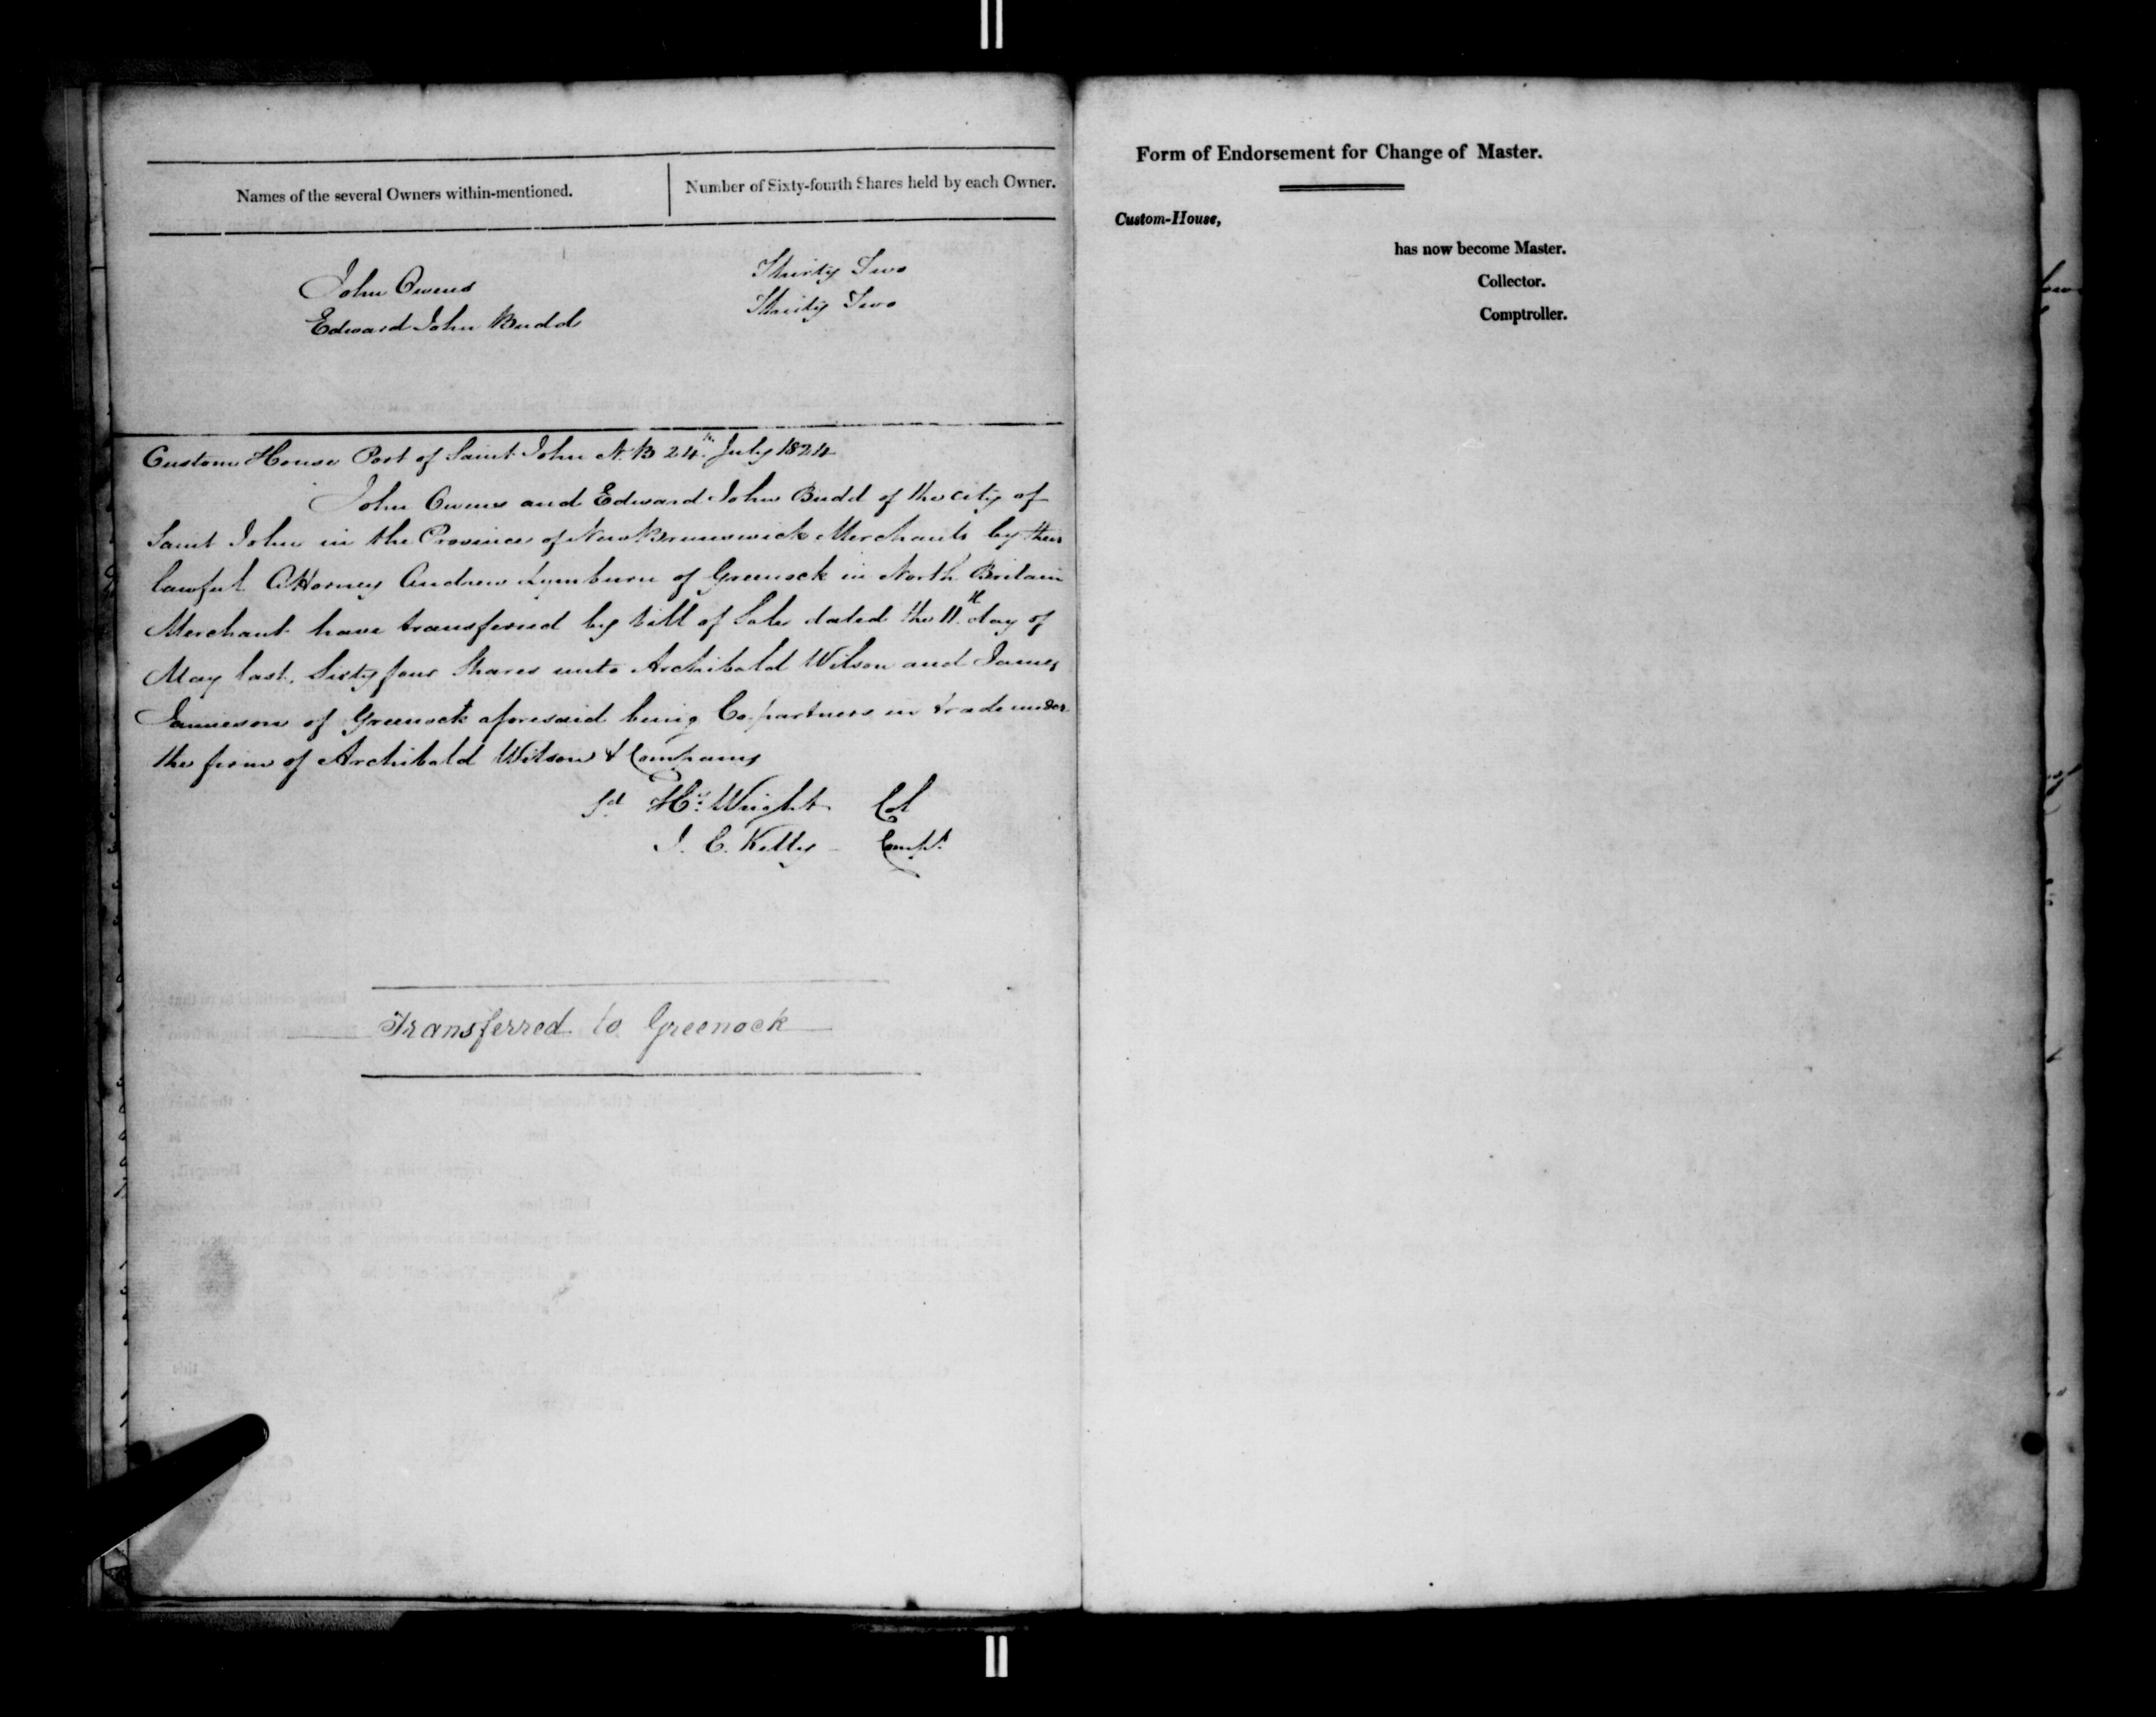 Names of the several Owners within-mentioned.
Number of Sixty-fourth Shares held by each Owner.
John Owens
Thirty Two
Edward John Budd
Thirty Two
Custom House Port of Saint John N.B 24th July 1824
John Owens and Edward John Budd of the city of
Saint John in the Province of New Brunswick Merchants by their
lawful Attorney Andrew Lymburn of Greenock in North Britain
Merchant have transferred by bill of Sale dated the 11th day of
May last, Sixty four Shares unto Archibald Wilson and James
Jamieson of Greenock aforesaid being Co.partners in trade under
the firm of Archibald Wilson & Company
Sd Hy Wright Col
J. C. Kelly Compt
Transferred to Greenock
Form of Endorsement for Change of Master.
Custom-House,
has now become Master.
Collector.
Comptroller.